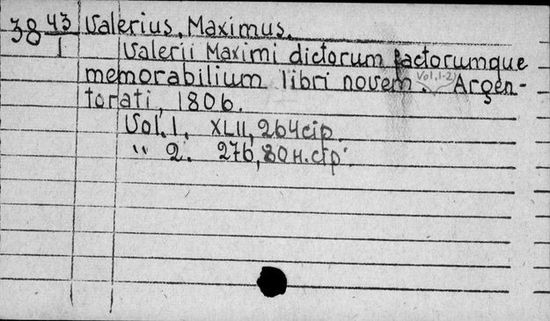 38 43/1 Valerius, Maximus.
Valerii Maximi dictorum factorumque
memorabilium libri novem. (Vol. 1-2) Argen-
torati, 1806.
Vol. 1. XLII, 264 cip.
" 2. 276, 80 н. cip.